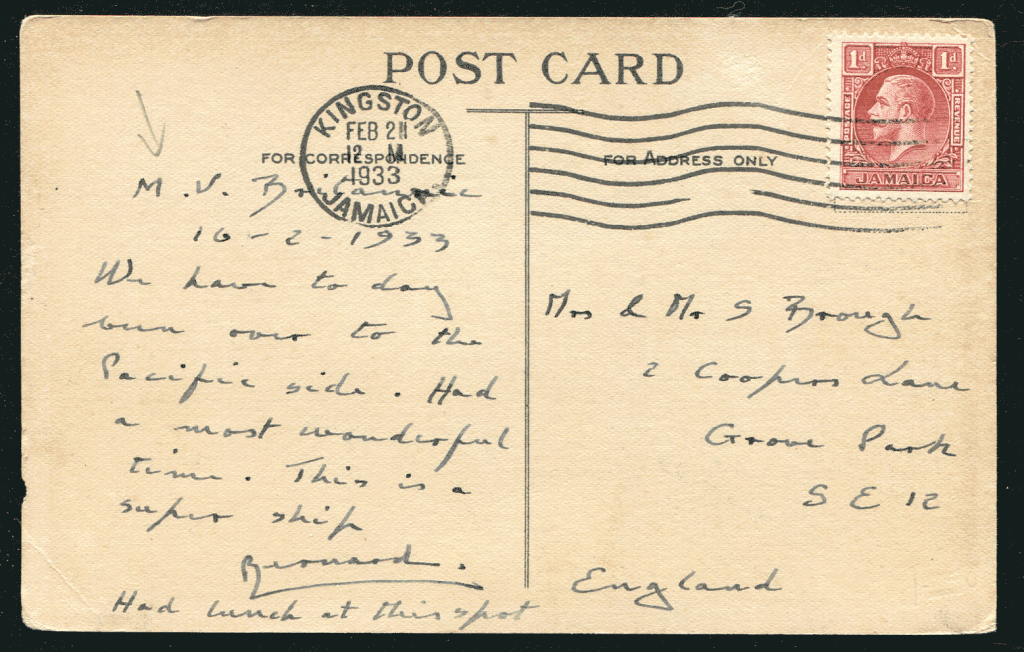 POST CARD
KINGSTON
FEB 21
12 M
1933
JAMAICA
1d 1d
POSTAGE REVENUE
JAMAICA
FOR CORRESPONDENCE
FOR ADDRESS ONLY
M.V. Britannic
16-2-1933
We have to day
been over to the
Pacific side. Had
a most wonderful
time. This is a
super ship
Bernard.
Had lunch at this spot
Mrs & Mr S Brough
2 Coopers Lane
Grove Park
S E 12
England